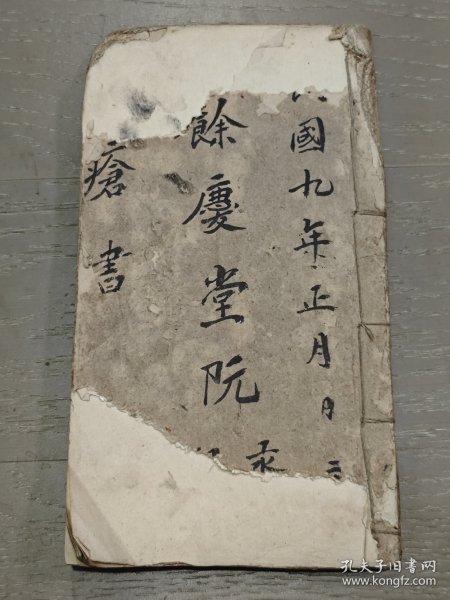 國九年正月日
餘慶堂阮
瘡書
孔夫子旧书网
www.kongfz.com